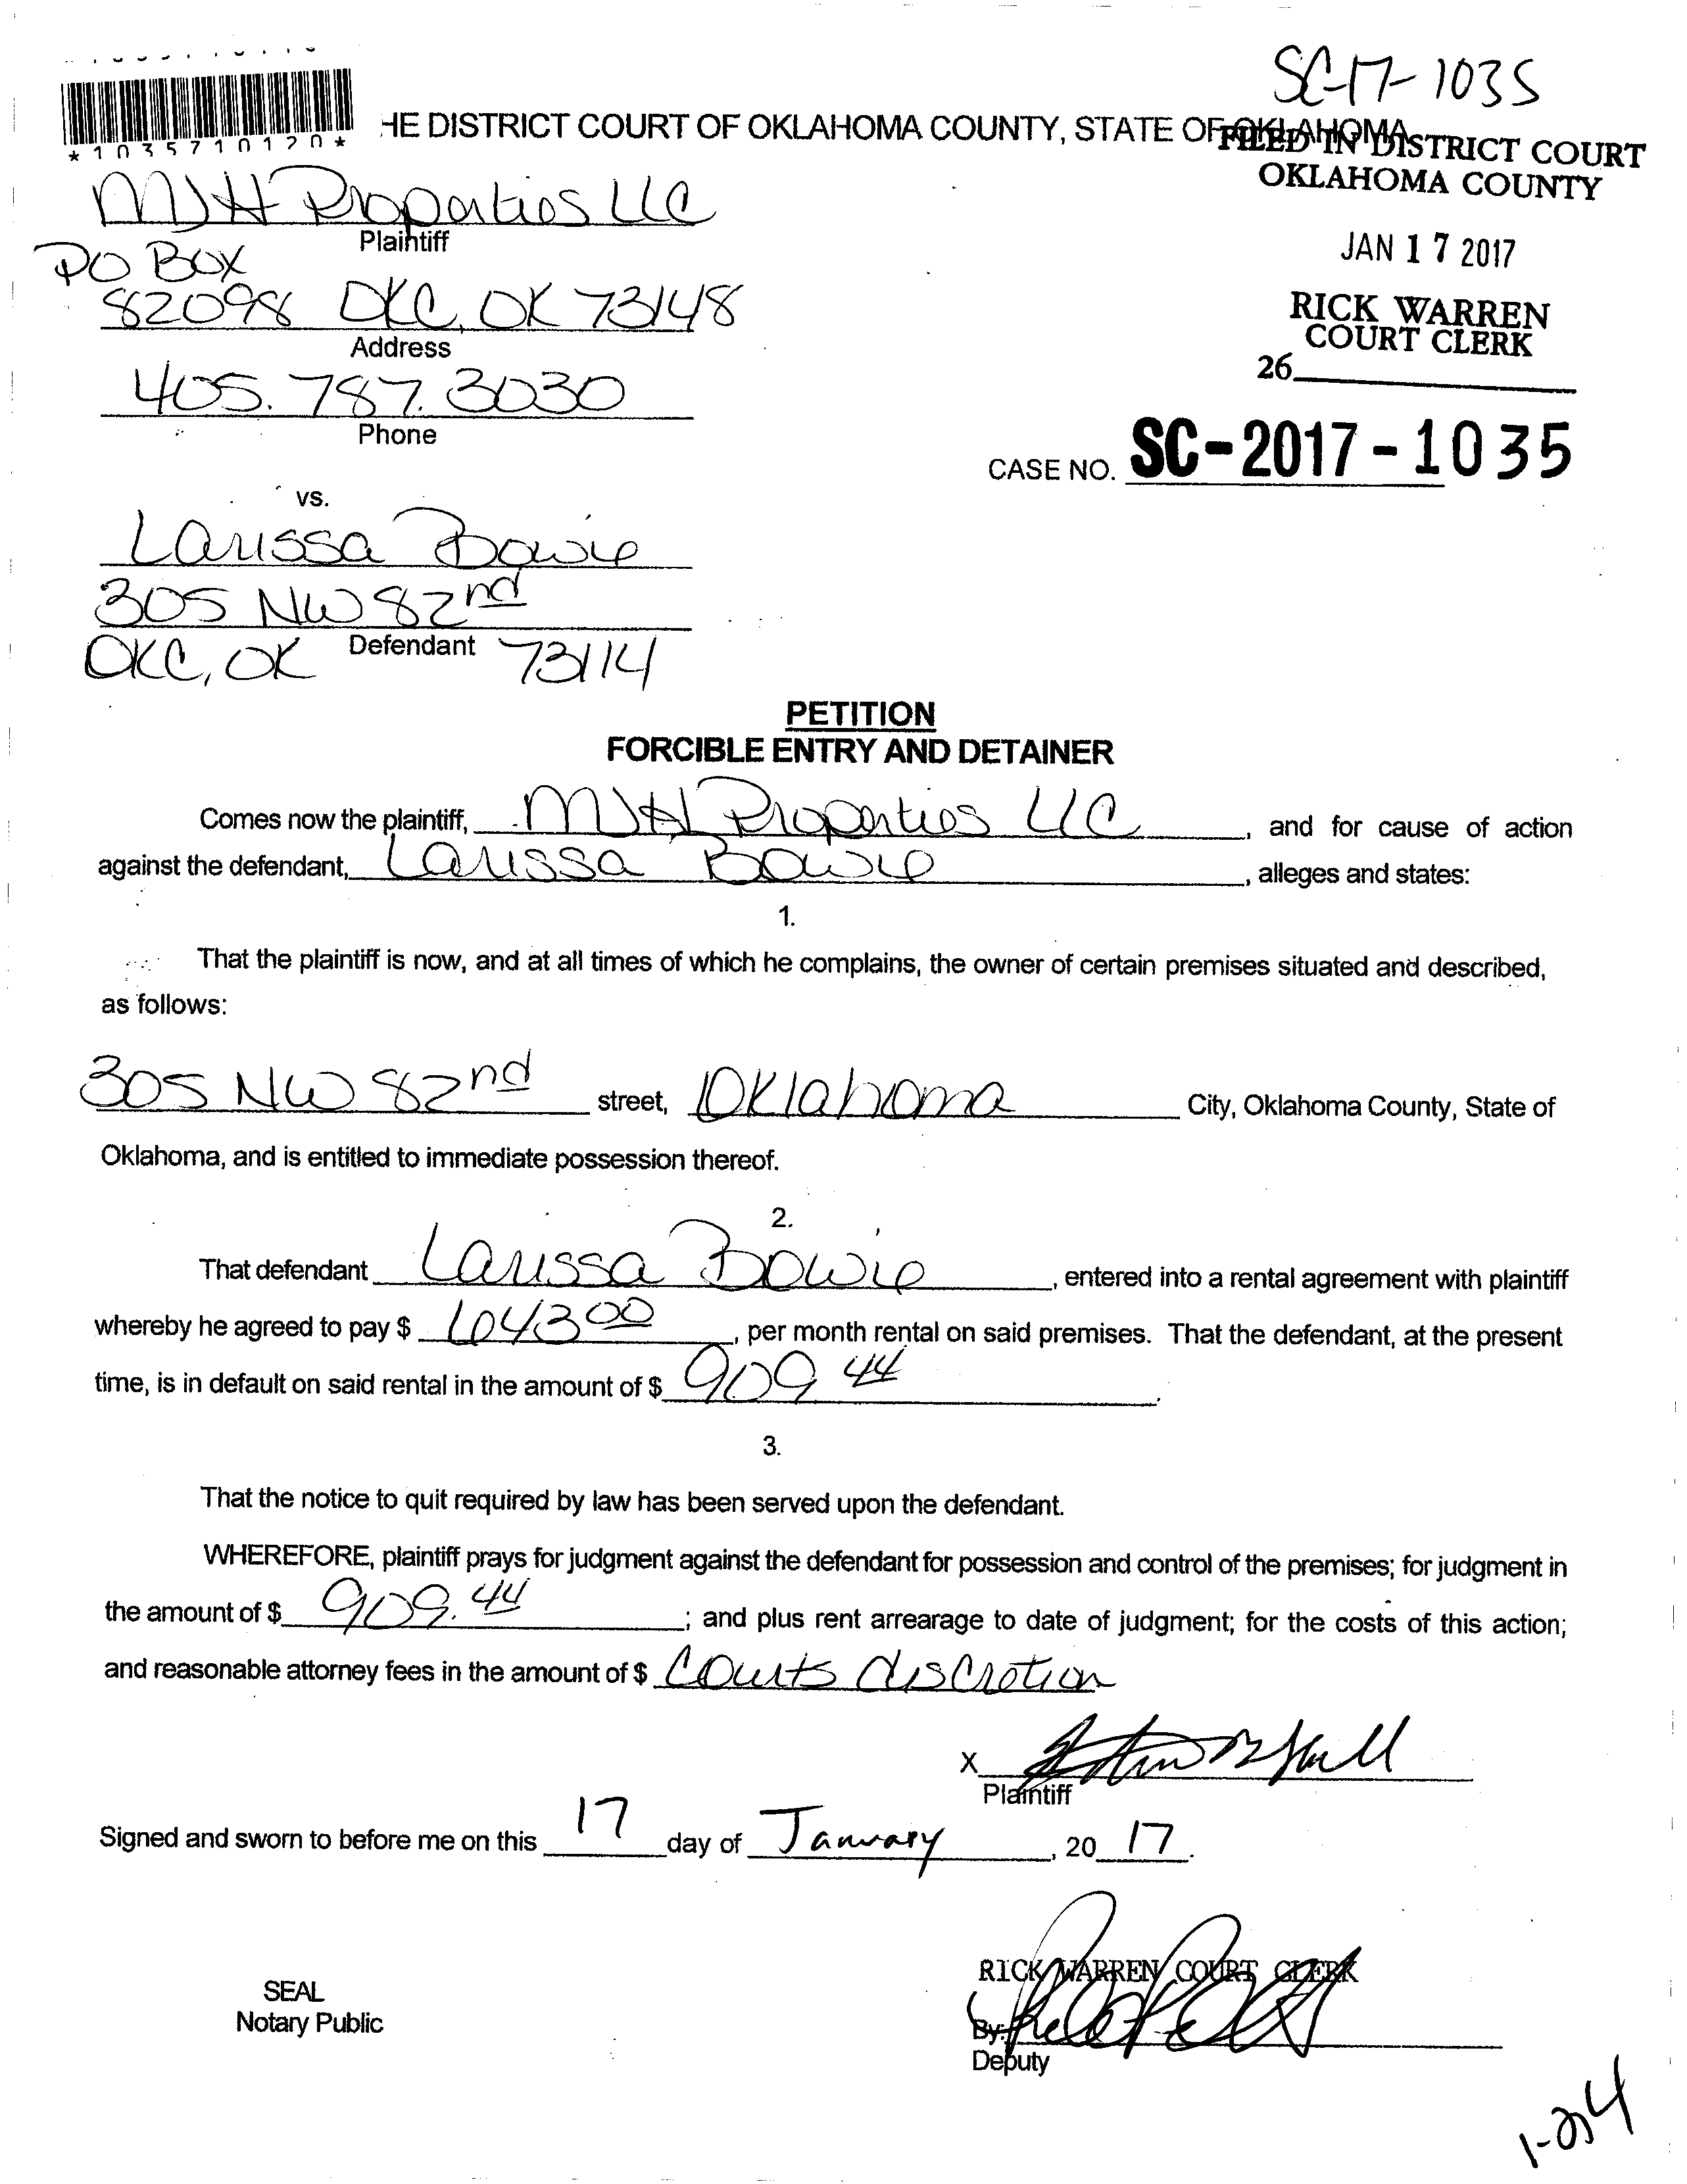 SC-17-1035
*1035710120*
HE DISTRICT COURT OF OKLAHOMA COUNTY, STATE OF OKLAHOMA
FILED IN DISTRICT COURT
OKLAHOMA COUNTY
JAN 17 2017
RICK WARREN
COURT CLERK
26
MJH Properties LLC
Plaintiff
PO BOX
82098 OKC, OK 73148
Address
405.787.3030
Phone
CASE NO. SC-2017-1035
vs.
Larissa Bowie
305 NW 82nd
Defendant
OKC, OK 73114
PETITION
FORCIBLE ENTRY AND DETAINER
Comes now the plaintiff, MJH Properties LLC, and for cause of action
against the defendant, Larissa Bowie, alleges and states:
1.
That the plaintiff is now, and at all times of which he complains, the owner of certain premises situated and described,
as follows:
305 NW 82nd street, Oklahoma City, Oklahoma County, State of
Oklahoma, and is entitled to immediate possession thereof.
2.
That defendant Larissa Bowie, entered into a rental agreement with plaintiff
whereby he agreed to pay $ 643 00, per month rental on said premises. That the defendant, at the present
time, is in default on said rental in the amount of $ 909 44.
3.
That the notice to quit required by law has been served upon the defendant.
WHEREFORE, plaintiff prays for judgment against the defendant for possession and control of the premises; for judgment in
the amount of $ 909.44; and plus rent arrearage to date of judgment; for the costs of this action;
and reasonable attorney fees in the amount of $ Courts discretion
X
Plaintiff
Signed and sworn to before me on this 17 day of January, 20 17.
RICK WARREN COURT CLERK
SEAL
Notary Public
By:
Deputy